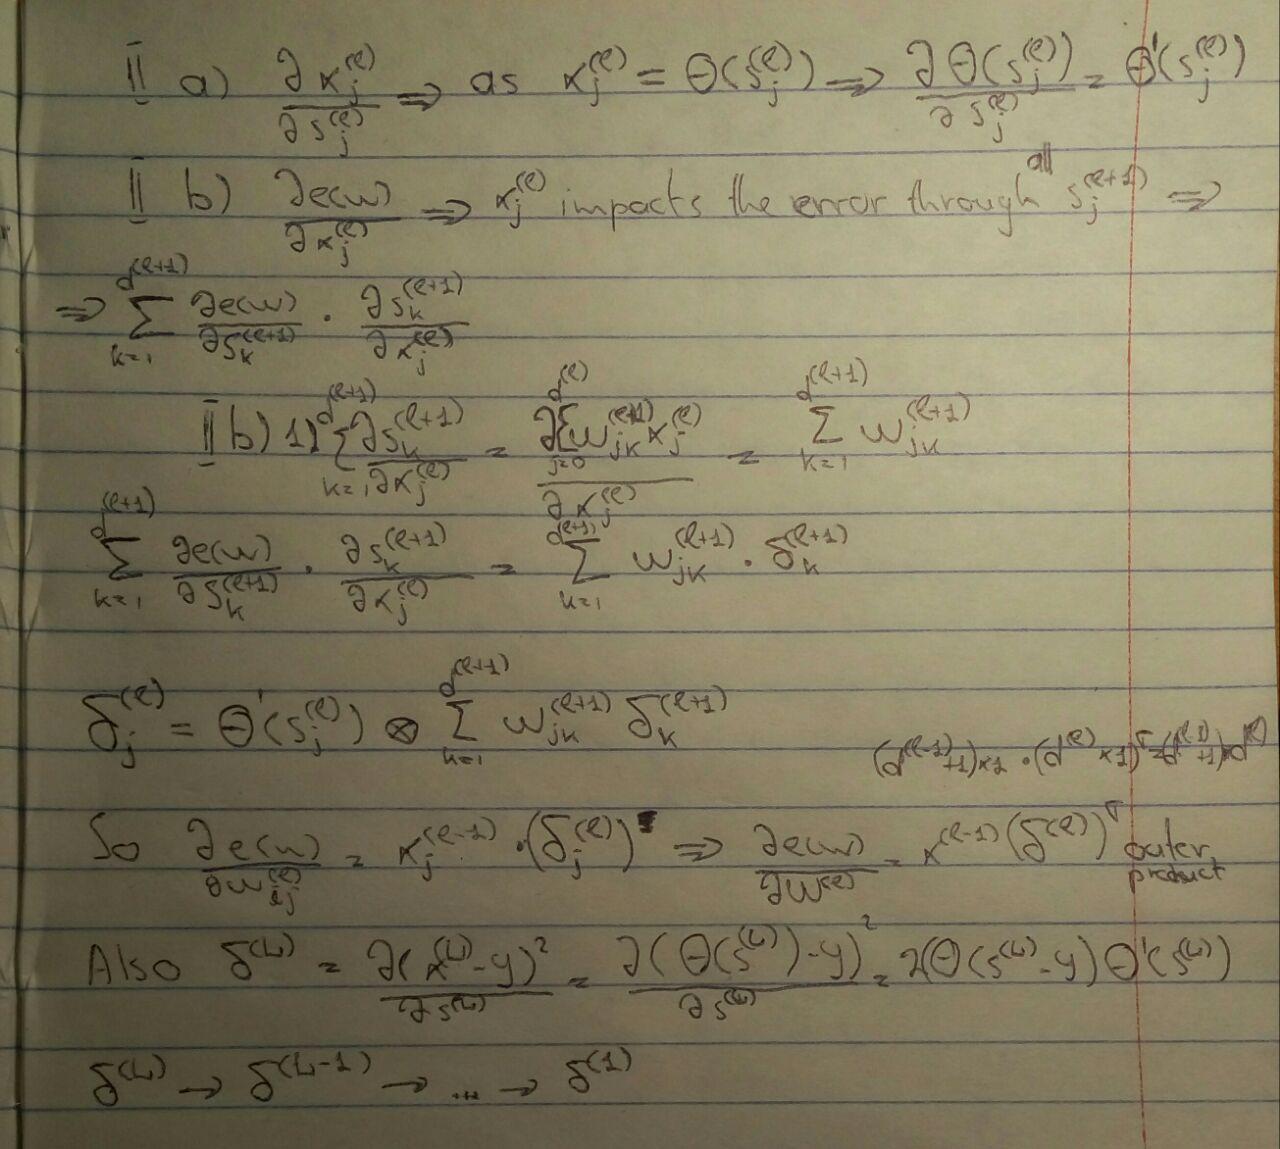 II a) ∂x_j^(ℓ) / ∂s_j^(ℓ) ⇒ as x_j^(ℓ) = Θ(s_j^(ℓ)) ⇒ ∂Θ(s_j^(ℓ)) / ∂s_j^(ℓ) = Θ'(s_j^(ℓ))
II b) ∂e(w) / ∂x_j^(ℓ) ⇒ x_j^(ℓ) impacts the error through all s_j^(ℓ+1) ⇒
⇒ Σ_{k=1}^{d^(ℓ+1)} ∂e(w) / ∂s_k^(ℓ+1) · ∂s_k^(ℓ+1) / ∂x_j^(ℓ)
II b) 1) Σ_{k=1}^{d^(ℓ+1)} ∂s_k^(ℓ+1) / ∂x_j^(ℓ) = ∂Σ_{j=0}^{d^(ℓ)} w_jk^(ℓ+1) x_j^(ℓ) / ∂x_j^(ℓ) = Σ_{k=1}^{d^(ℓ+1)} w_jk^(ℓ+1)
Σ_{k=1}^{d^(ℓ+1)} ∂e(w) / ∂s_k^(ℓ+1) · ∂s_k^(ℓ+1) / ∂x_j^(ℓ) = Σ_{k=1}^{d^(ℓ+1)} w_jk^(ℓ+1) · δ_k^(ℓ+1)
δ_j^(ℓ) = Θ'(s_j^(ℓ)) ⊗ Σ_{k=1}^{d^(ℓ+1)} w_jk^(ℓ+1) δ_k^(ℓ+1)
(d^(ℓ-1)+1)×1 · (d^(ℓ)×1)^T = (d^(ℓ-1)+1)×d^(ℓ)
So ∂e(w) / ∂w_ij^(ℓ) = x_j^(ℓ-1) · (δ_j^(ℓ)) ⇒ ∂e(w) / ∂W^(ℓ) = x^(ℓ-1) (δ^(ℓ))^T outer product
Also δ^(L) = ∂(x^(L) - y)^2 / ∂s^(L) = ∂(Θ(s^(L)) - y)^2 / ∂s^(L) = 2(Θ(s^(L) - y) Θ'(s^(L))
δ^(L) → δ^(L-1) → ... → δ^(1)